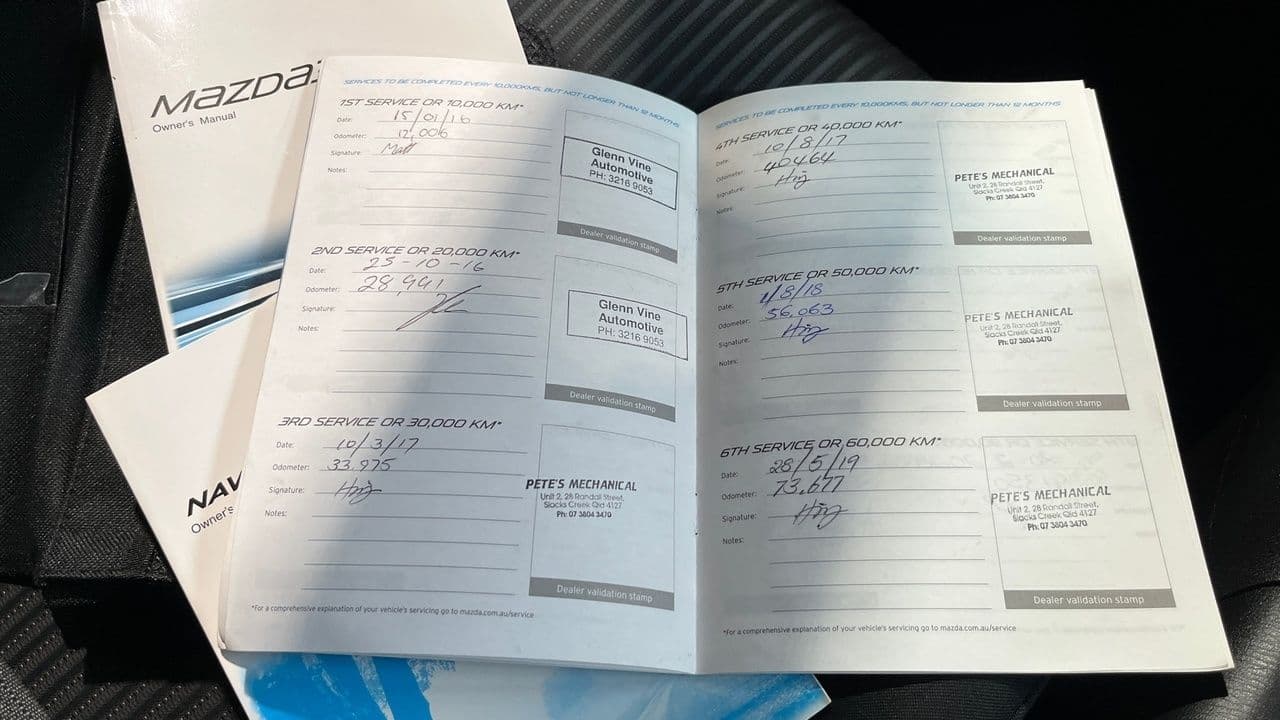 Mazda3
Owner's Manual
NAV
Owner's
SERVICES TO BE COMPLETED EVERY 10,000KMS, BUT NOT LONGER THAN 12 MONTHS
1ST SERVICE OR 10,000 KM*
Date: 15/01/16
Odometer: 12,006
Signature: Matt
Notes:
Glenn Vine
Automotive
PH: 3216 9053
Dealer validation stamp
2ND SERVICE OR 20,000 KM*
Date: 25-10-16
Odometer: 28,941
Signature:
Notes:
Glenn Vine
Automotive
PH: 3216 9053
Dealer validation stamp
3RD SERVICE OR 30,000 KM*
Date: 10/3/17
Odometer: 33,975
Signature:
Notes:
PETE'S MECHANICAL
Unit 2, 28 Randall Street,
Slacks Creek Qld 4127
Ph: 07 3804 3470
Dealer validation stamp
*For a comprehensive explanation of your vehicle's servicing go to mazda.com.au/service
SERVICES TO BE COMPLETED EVERY 10,000KMS, BUT NOT LONGER THAN 12 MONTHS
4TH SERVICE OR 40,000 KM*
Date: 10/8/17
Odometer: 40464
Signature:
Notes:
PETE'S MECHANICAL
Unit 2, 28 Randall Street,
Slacks Creek Qld 4127
Ph: 07 3804 3470
Dealer validation stamp
5TH SERVICE OR 50,000 KM*
Date: 1/8/18
Odometer: 56,063
Signature:
Notes:
PETE'S MECHANICAL
Unit 2, 28 Randall Street,
Slacks Creek Qld 4127
Ph: 07 3804 3470
Dealer validation stamp
6TH SERVICE OR 60,000 KM*
Date: 28/5/19
Odometer: 73,677
Signature:
Notes:
PETE'S MECHANICAL
Unit 2, 28 Randall Street,
Slacks Creek Qld 4127
Ph: 07 3804 3470
Dealer validation stamp
*For a comprehensive explanation of your vehicle's servicing go to mazda.com.au/service